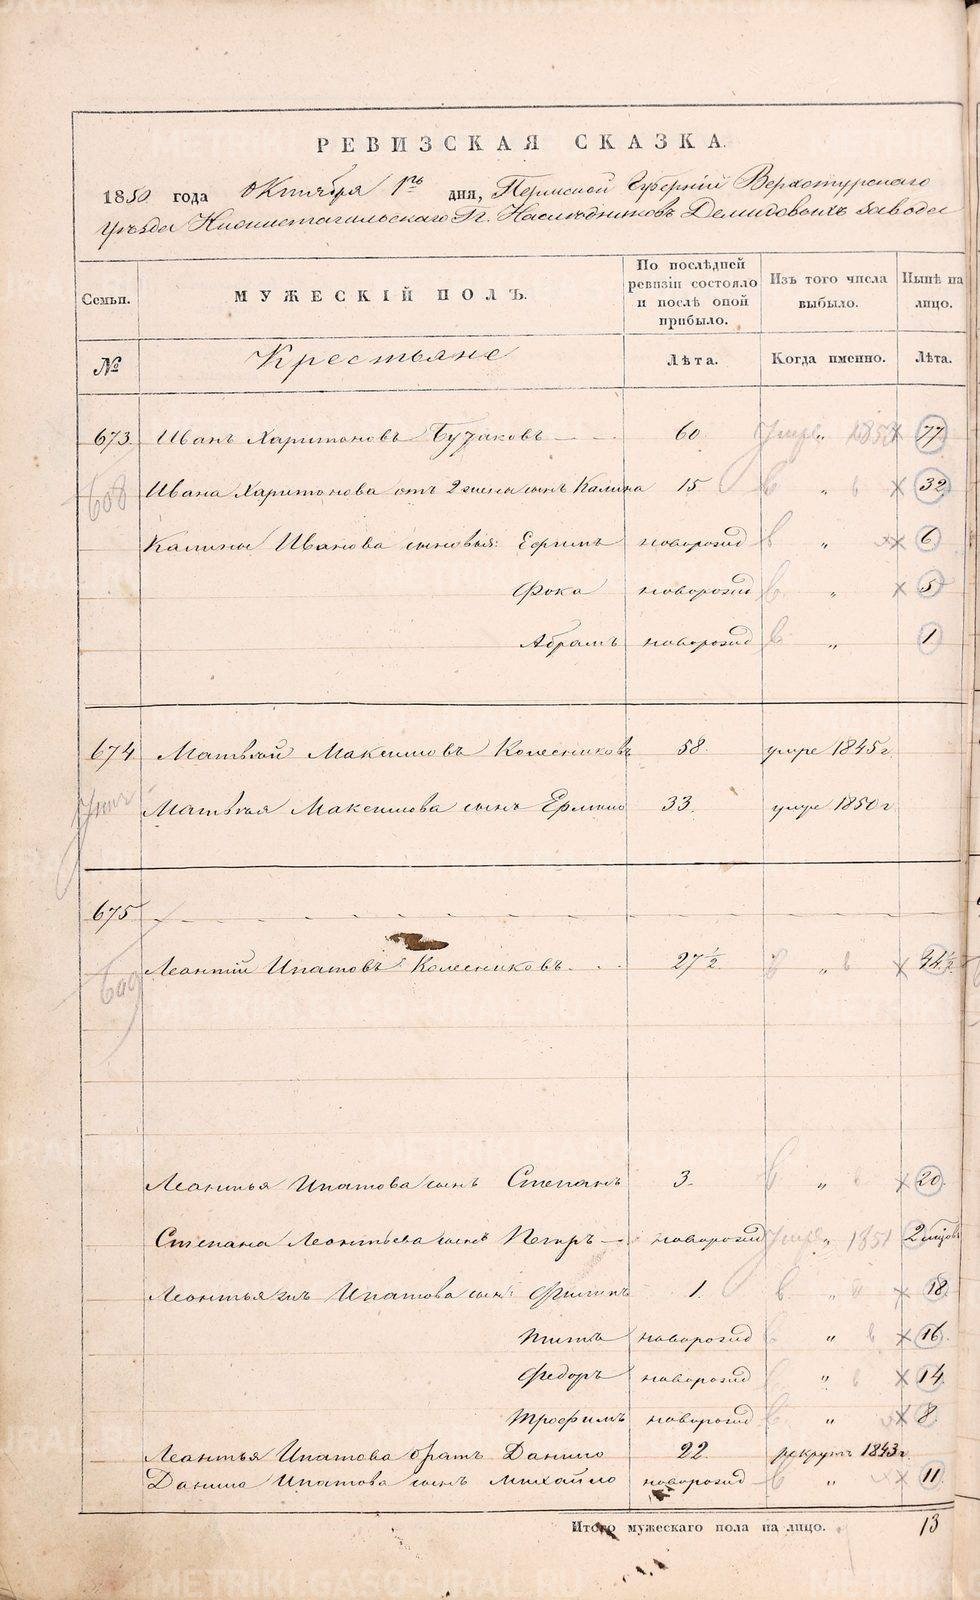 РЕВИЗСКАЯ СКАЗКА.
1850 года Октября 1го дня, Пермской Губернiи Верхотурскаго
Уѣзда Нижнетагильскаго Гг. Наслѣдниковъ Демидовыхъ завода
Семьи. МУЖЕСКIЙ ПОЛЪ. По послѣдней ревизiи состояло и послѣ оной прибыло. Изъ того числа выбыло. Нынѣ на лицо.
№ Крестьяне Лѣта. Когда именно. Лѣта.
673. Иванъ Харитоновъ 60. Умре „ 185 77
608 Ивана Харитонова отъ 2 жены сынъ Калина 15 „ 32
Калины Иванова сыновья: Ефимъ новорожд „ 6
Фока новорожд „ 5
Абрамъ новорожд „ 1
674 Матвѣй Максимовъ Колесниковъ 58. умре 1845 г.
Матвѣя Максимова сынъ Ермило 33. умре 1850 г
675
609 Леонтiй Ипатовъ Колесниковъ 27 1/2 „ 44 1/2
Леонтья Ипатова сынъ Степанъ 3. „ 20.
Степана Леонтьева сынъ Петръ новорожд Умре „ 1851 2 мцовъ
Леонтья жъ Ипатова сын: Филипъ 1. „ 18.
Титъ новорожд „ 16.
Федоръ новорожд „ 14.
Трофимъ новорожд „ 8.
Леонтья Ипатова братъ Данило 22. рекрутъ 1843 г
Данило Ипатова сынъ Михайло новорожд „ 11.
Итого мужескаго пола на лицо. 13
METRIKI.GASO-URAL.RU